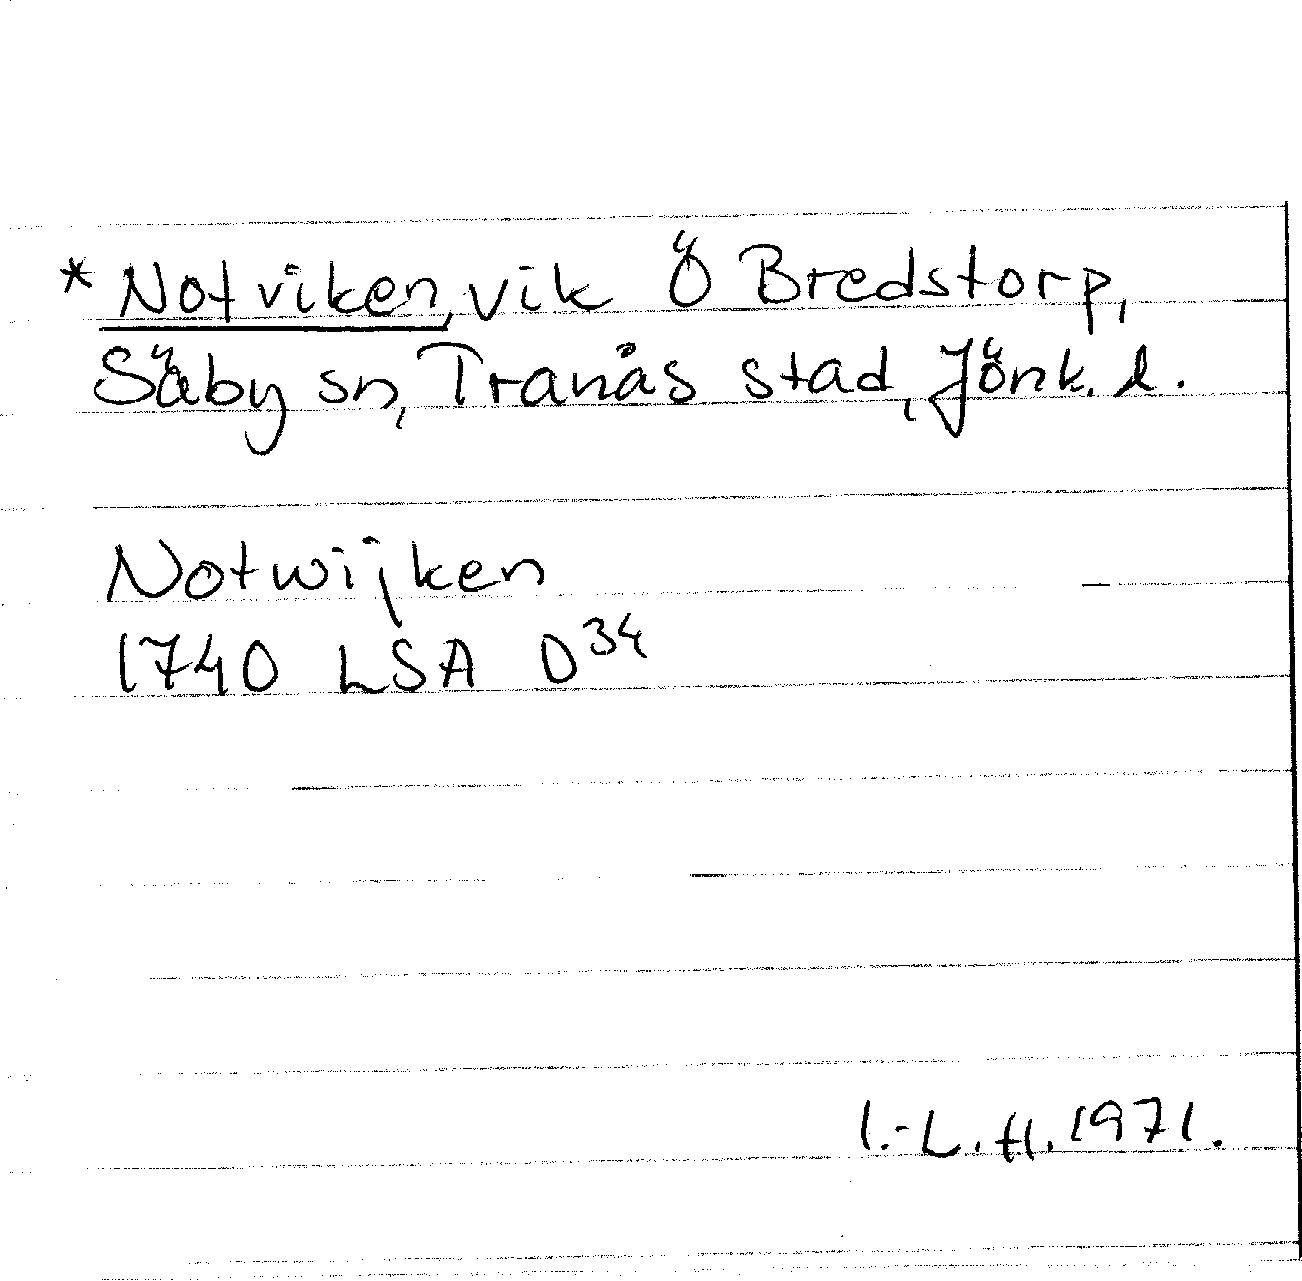 * Notviken, vik Ö Bredstorp,
Säby sn, Tranås stad, Jönk. l.
Notwijken
1740 LSA D34
I.-L. H. 1971.